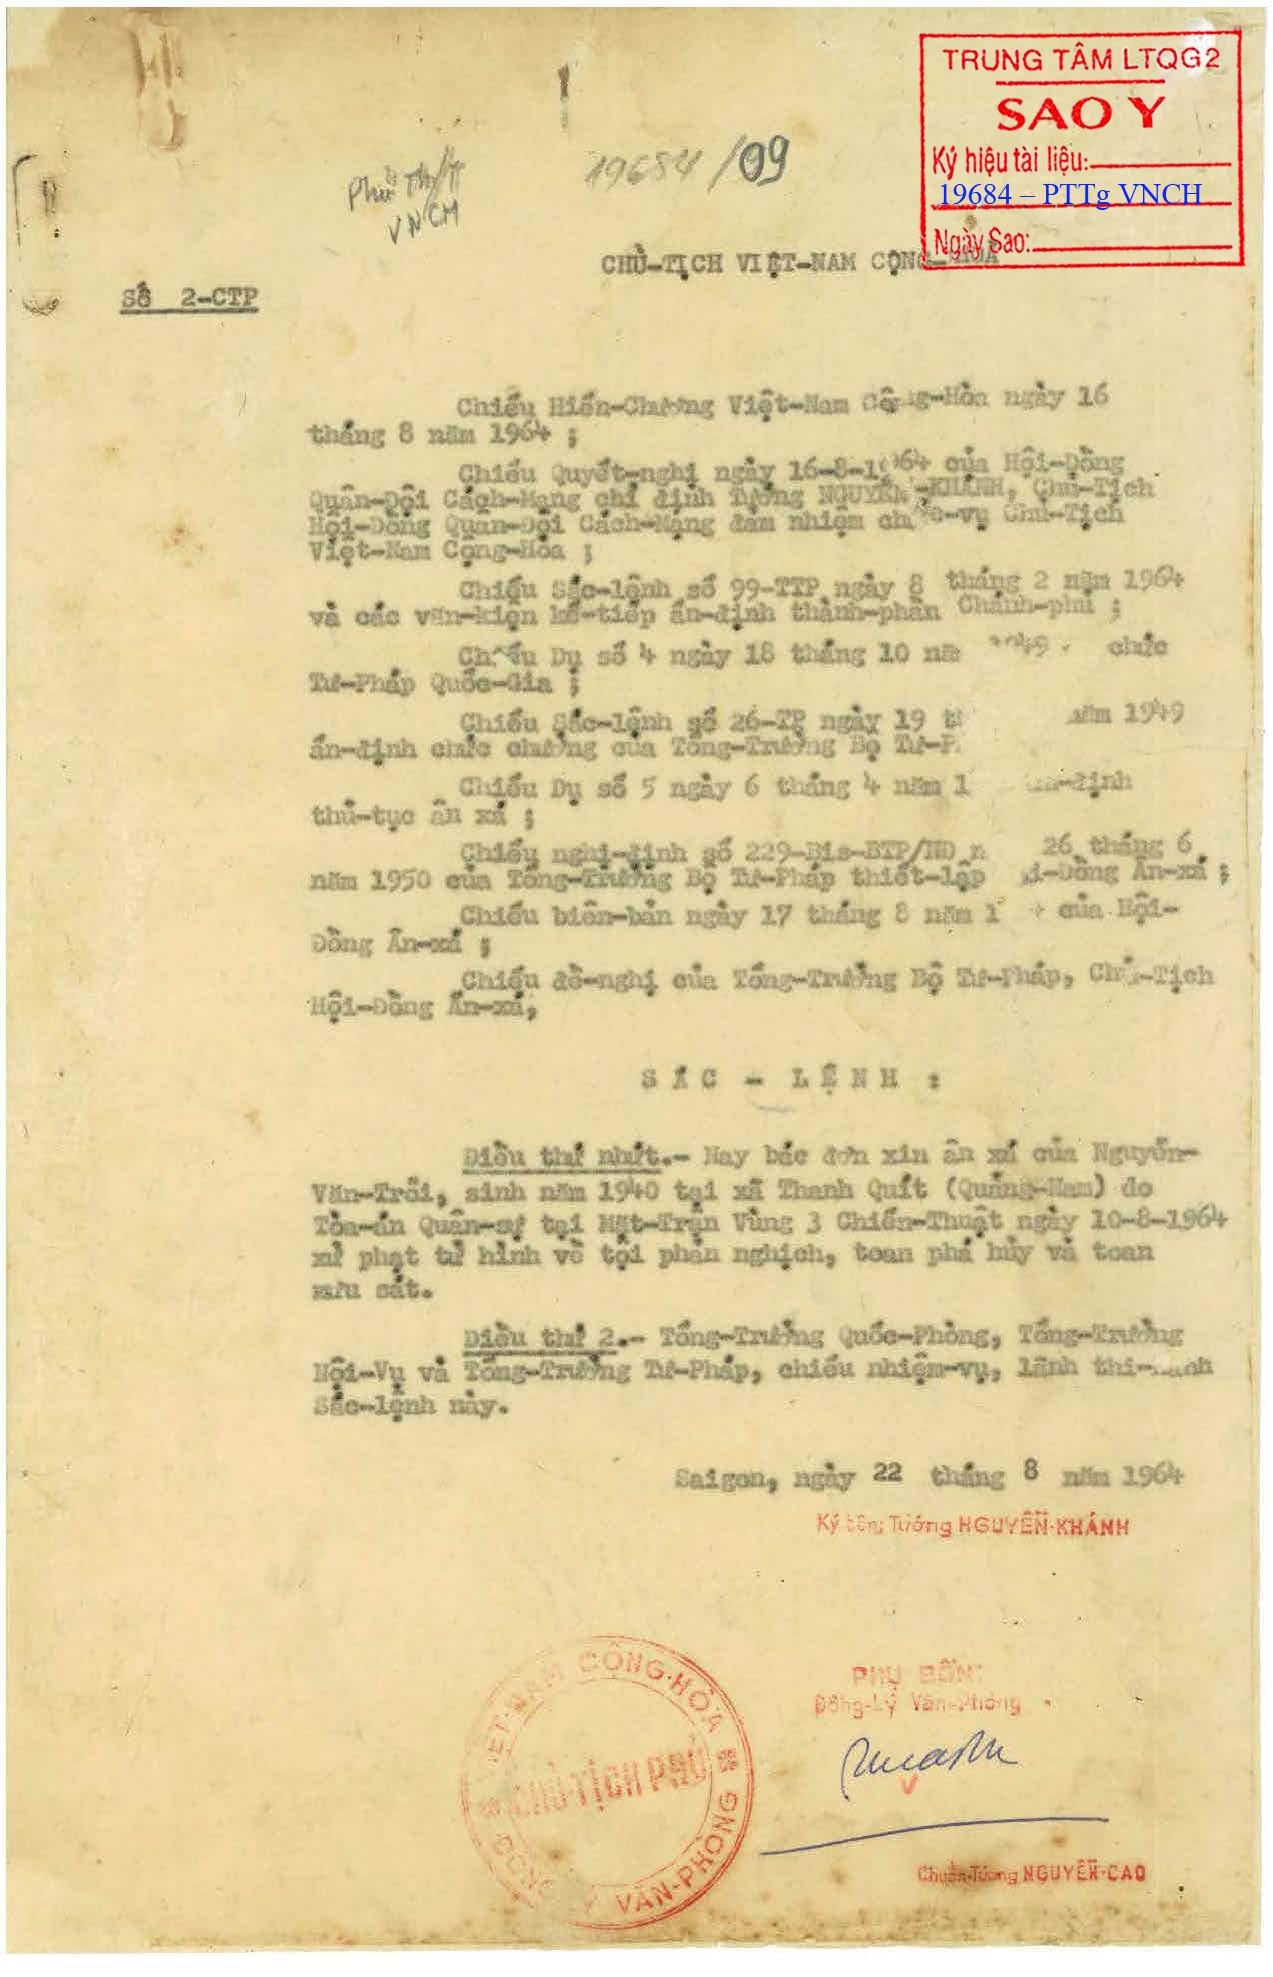 TRUNG TÂM LTQG2
SAO Y
Ký hiệu tài liệu:
19684 – PTTg VNCH
Ngày Sao:
Phủ Th/T
VNCH
19684/09
CHỦ-TỊCH VIỆT-NAM CỘNG-HOÀ
Số 2-CTP
Chiếu Hiến-Chương Việt-Nam Cộng-Hòa ngày 16
tháng 8 năm 1964 ;
Chiếu Quyết-nghị ngày 16-8-1964 của Hội-Đồng
Quân-Đội Cách-Mạng chỉ định Tướng NGUYỄN-KHÁNH, Chủ-Tịch
Hội-Đồng Quân-Đội Cách-Mạng đảm nhiệm chức-vụ Chủ-Tịch
Việt-Nam Cộng-Hòa ;
Chiếu Sắc-lệnh số 99-TTP ngày 8 tháng 2 năm 1964
và các văn-kiện kế-tiếp ấn-định thành-phần Chánh-phủ ;
Chiếu Dụ số 4 ngày 18 tháng 10 1949 chức
Tư-Pháp Quốc-Gia ;
Chiếu Sắc-lệnh số 26-TP ngày 19 năm 1949
ấn-định chức chưởng của Tổng-Trưởng Bộ
Chiếu Dụ số 5 ngày 6 tháng 4 năm
thủ-tục ân xá ;
Chiếu nghị-định số 229-Bis-BTP/ND 26 tháng 6
năm 1950 của Tổng-Trưởng Bộ Tư-Pháp thiết-lập Hội-Đồng Ân-xá ;
Chiếu biên-bản ngày 17 tháng 8 năm của Hội-
Đồng Ân-xá ;
Chiếu đề-nghị của Tổng-Trưởng Bộ Tư-Pháp, Chủ-Tịch
Hội-Đồng Ân-xá,
SẮC - LỆNH :
Điều thứ nhứt.- Nay bác đơn xin ân xá của Nguyễn-
Văn-Trỗi, sinh năm 1940 tại xã Thanh Quít (Quảng-Nam) do
Tòa-án Quân-sự tại Mặt-Trận Vùng 3 Chiến-Thuật ngày 10-8-1964
xử phạt tử hình về tội phản nghịch, toan phá hủy và toan
mưu sát.
Điều thứ 2.- Tổng-Trưởng Quốc-Phòng, Tổng-Trưởng
Nội-Vụ và Tổng-Trưởng Tư-Pháp, chiếu nhiệm-vụ, lãnh thi-hành
Sắc-lệnh này.
Saigon, ngày 22 tháng 8 năm 1964
Ký tên: Tướng NGUYỄN-KHÁNH
PHỤ BỔN:
Đổng-Lý Văn-Phòng
VIỆT-NAM CỘNG-HÒA
CHỦ-TỊCH PHỦ
ĐỔNG LÝ VĂN-PHÒNG
Chuẩn-Tướng NGUYỄN-CAO